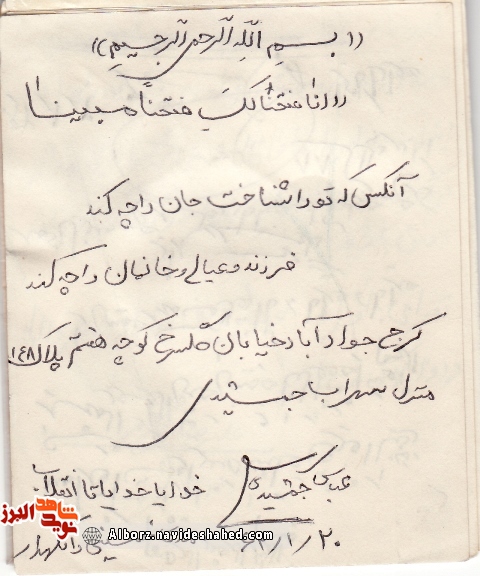 «بسم الله الرحمن الرحیم»
«انا فتحنا لک فتحناً مبینا
آنکس که تو را شناخت جان را چه کند
فرزند و عیال و خانمان را چه کند
کرج جواد آباد خیابان گلسرخ کوچه هفتم پلاک ۱۴۸
منزل سهراب جمشیدی
عباس جمشیدی
خدایا خدایا تا انقلاب
را نگهدار
۲۰/۱/
شاهد
نوید
البرز
Alborz.navideshahed.com